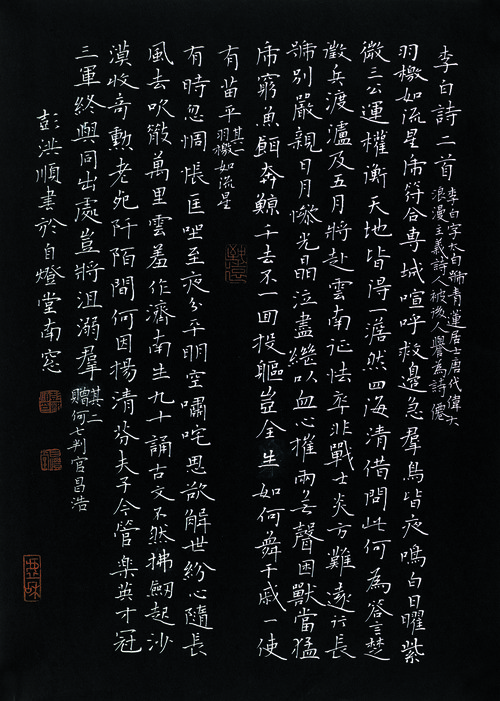 李白詩二首
李白字太白號青蓮居士唐代偉大
浪漫主義詩人被後人譽為詩僊
羽檄如流星虎符合專城喧呼救邊急羣鳥皆夜鳴白日曜紫
微三公運權衡天地皆得一澹然四海清借問此何為答言楚
徵兵渡瀘及五月將赴雲南征怯卒非戰士炎方難遠行長
號別嚴親日月慘光晶泣盡繼以血心摧兩无聲困獸當猛
虎窮魚餌奔鯨千去不一回投軀豈全生如何舞干戚一使
有苗平
其一
羽檄如流星
有時忽惆悵匡坐至夜分平明空嘯咤思欲解世紛心隨長
風去吹散萬里雲羞作濟南生九十誦古文不然拂劒起沙
漠收奇勳老死阡陌間何因揚清芬夫子今管樂英才冠
三軍終與同出處豈將沮溺羣
其二
贈何七判官昌浩
彭洪順書於自燈堂南窓